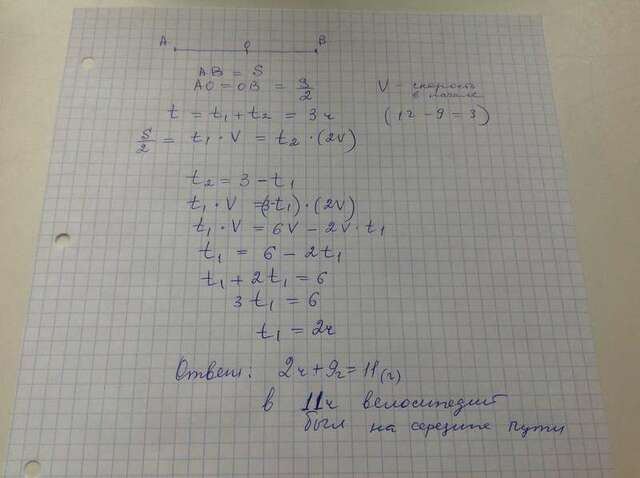 A O B
AB = S
AO = OB = S/2
V - скорость в начале
t = t₁ + t₂ = 3ч (12 - 9 = 3)
S/2 = t₁ · V = t₂ · (2V)
t₂ = 3 - t₁
t₁ · V = (3-t₁) · (2V)
t₁ · V = 6V - 2V · t₁
t₁ = 6 - 2t₁
t₁ + 2t₁ = 6
3t₁ = 6
t₁ = 2ч
Ответ: 2ч + 9ч = 11(ч)
в 11ч велосипедист
был на середине пути